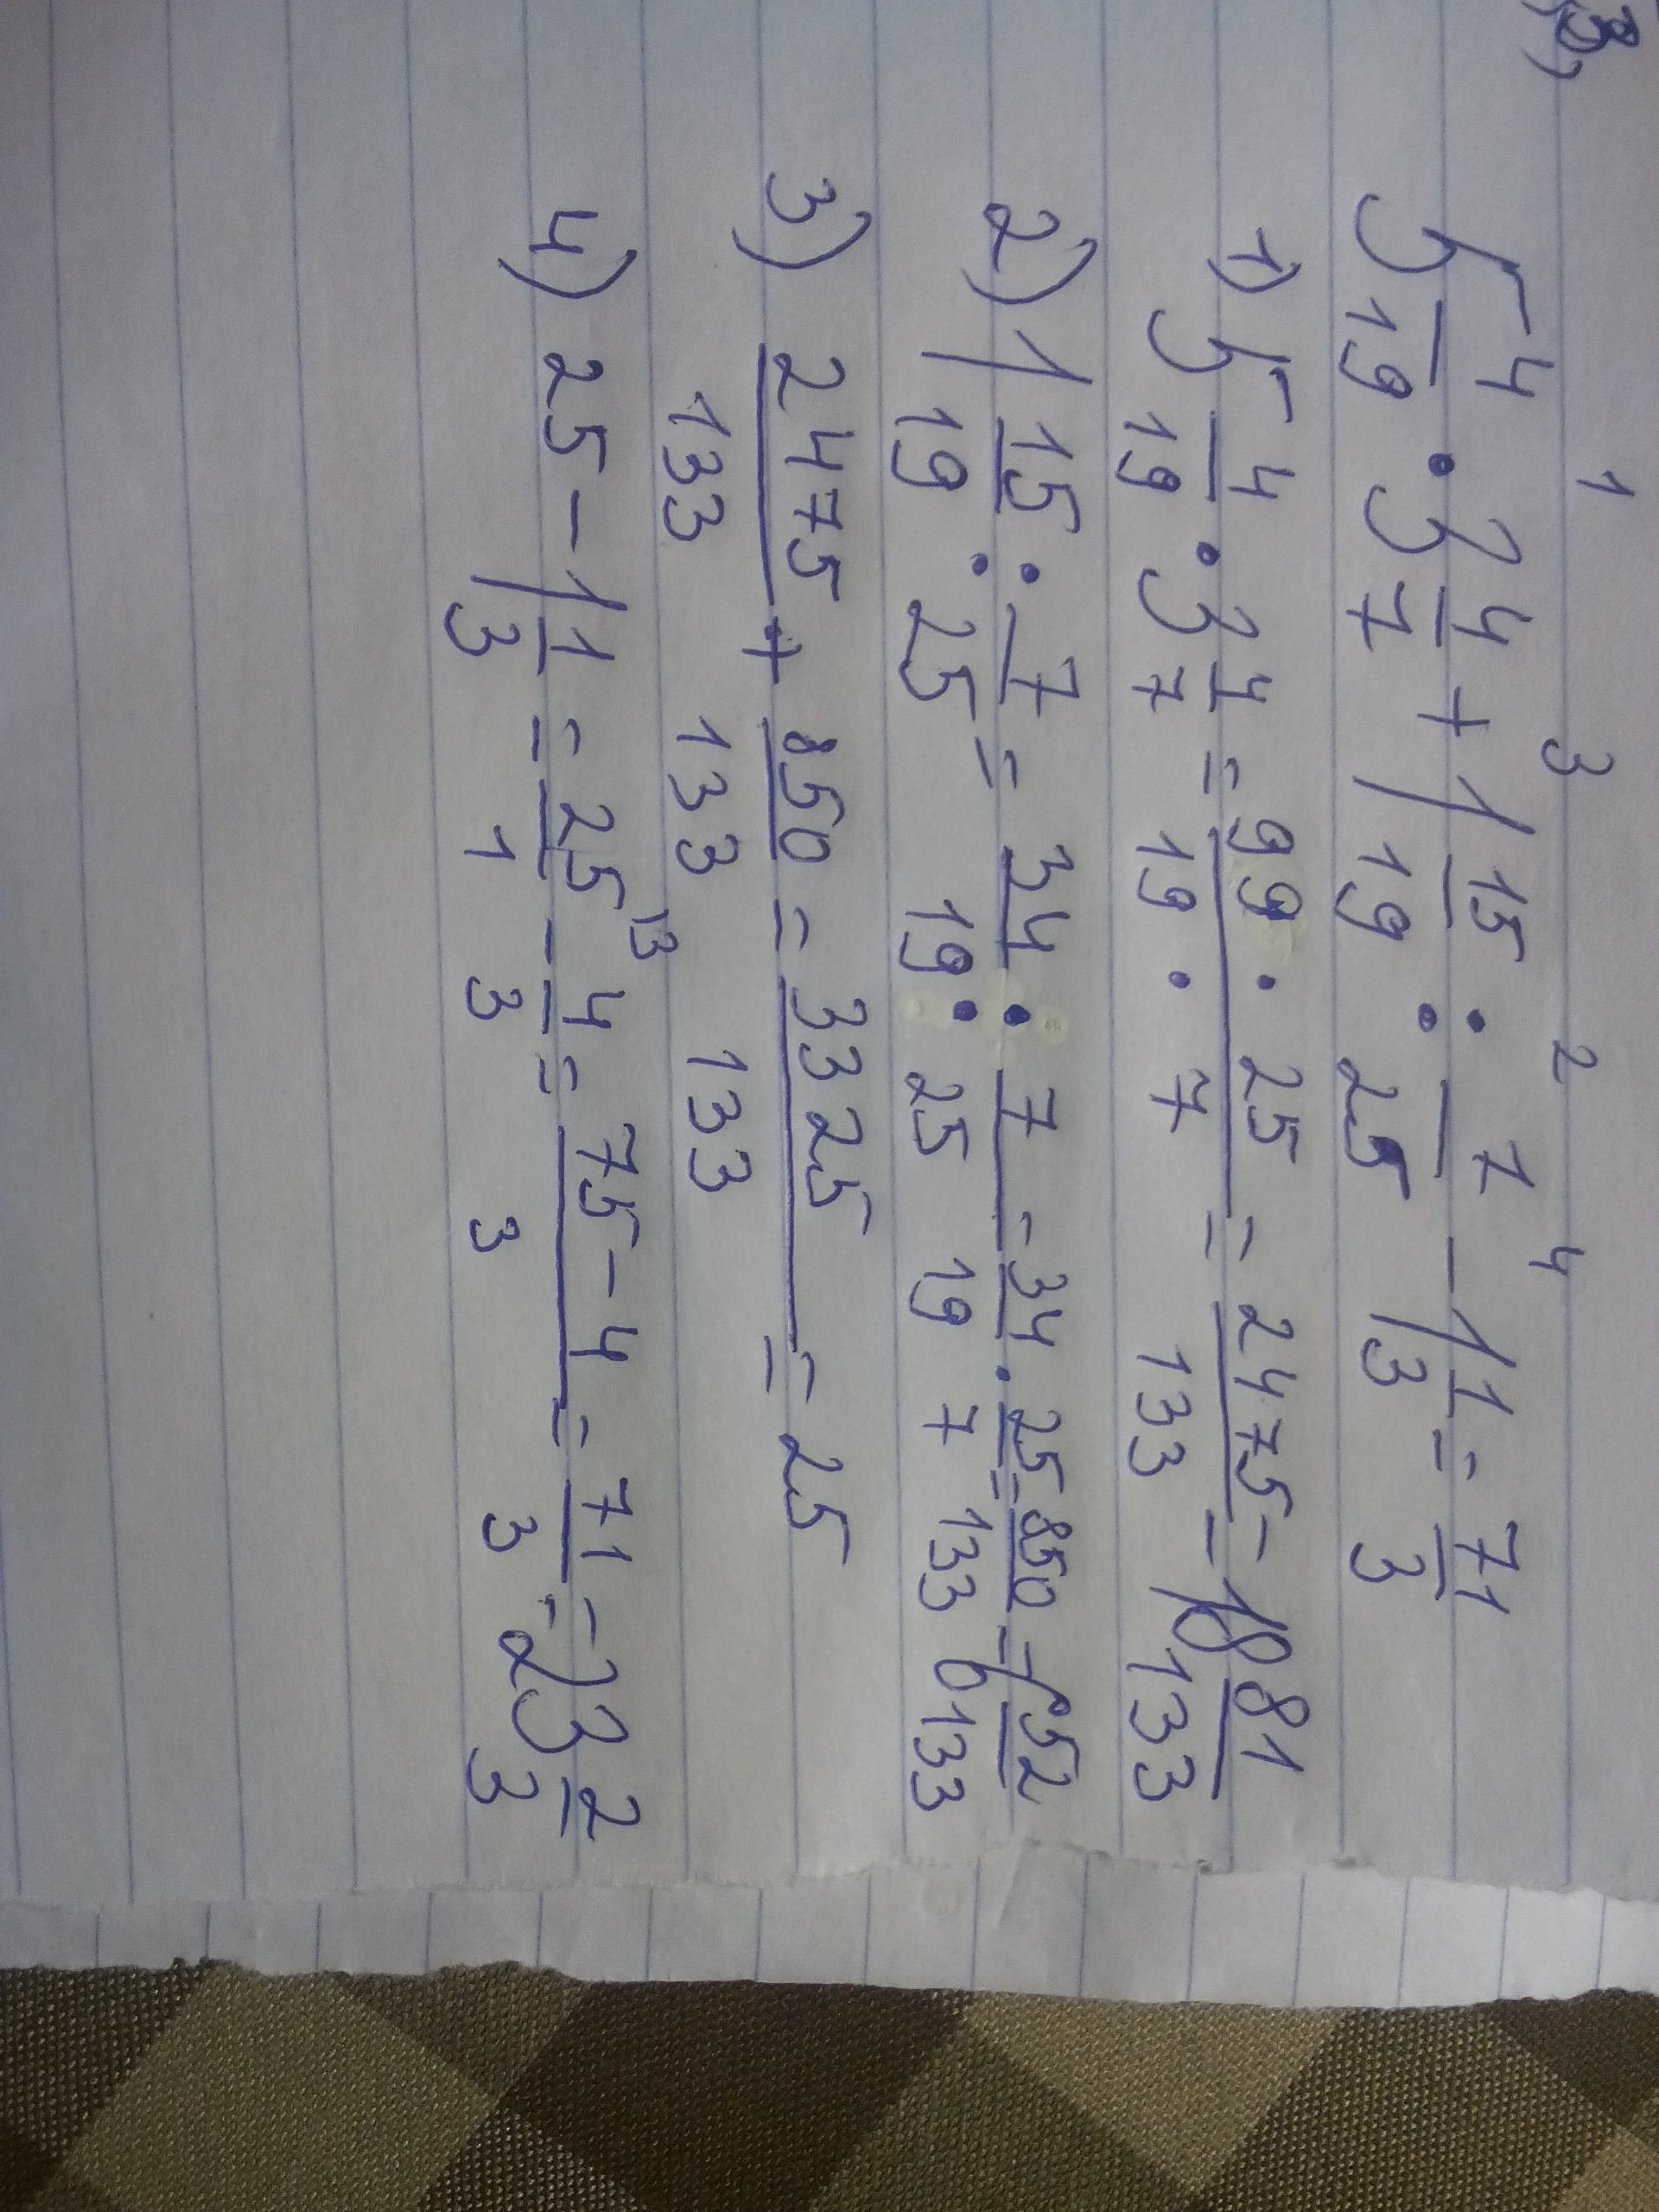 3)
1 3 2 4
5 4/19 · 3 4/7 + 1 15/19 : 7/25 - 1 1/3 = 71/3
1) 5 4/19 · 3 4/7 = 99 · 25/19 · 7 = 2475/133 = 18 81/133
2) 1 15/19 : 7/25 = 34/19 : 7/25 = 34/19 · 25/7 = 850/133 = 6 52/133
3) 2475/133 + 850/133 = 3325/133 = 25
4) 25 - 1 1/3 = 25/1 - 4/3 = 75 - 4/3 = 71/3 = 23 2/3